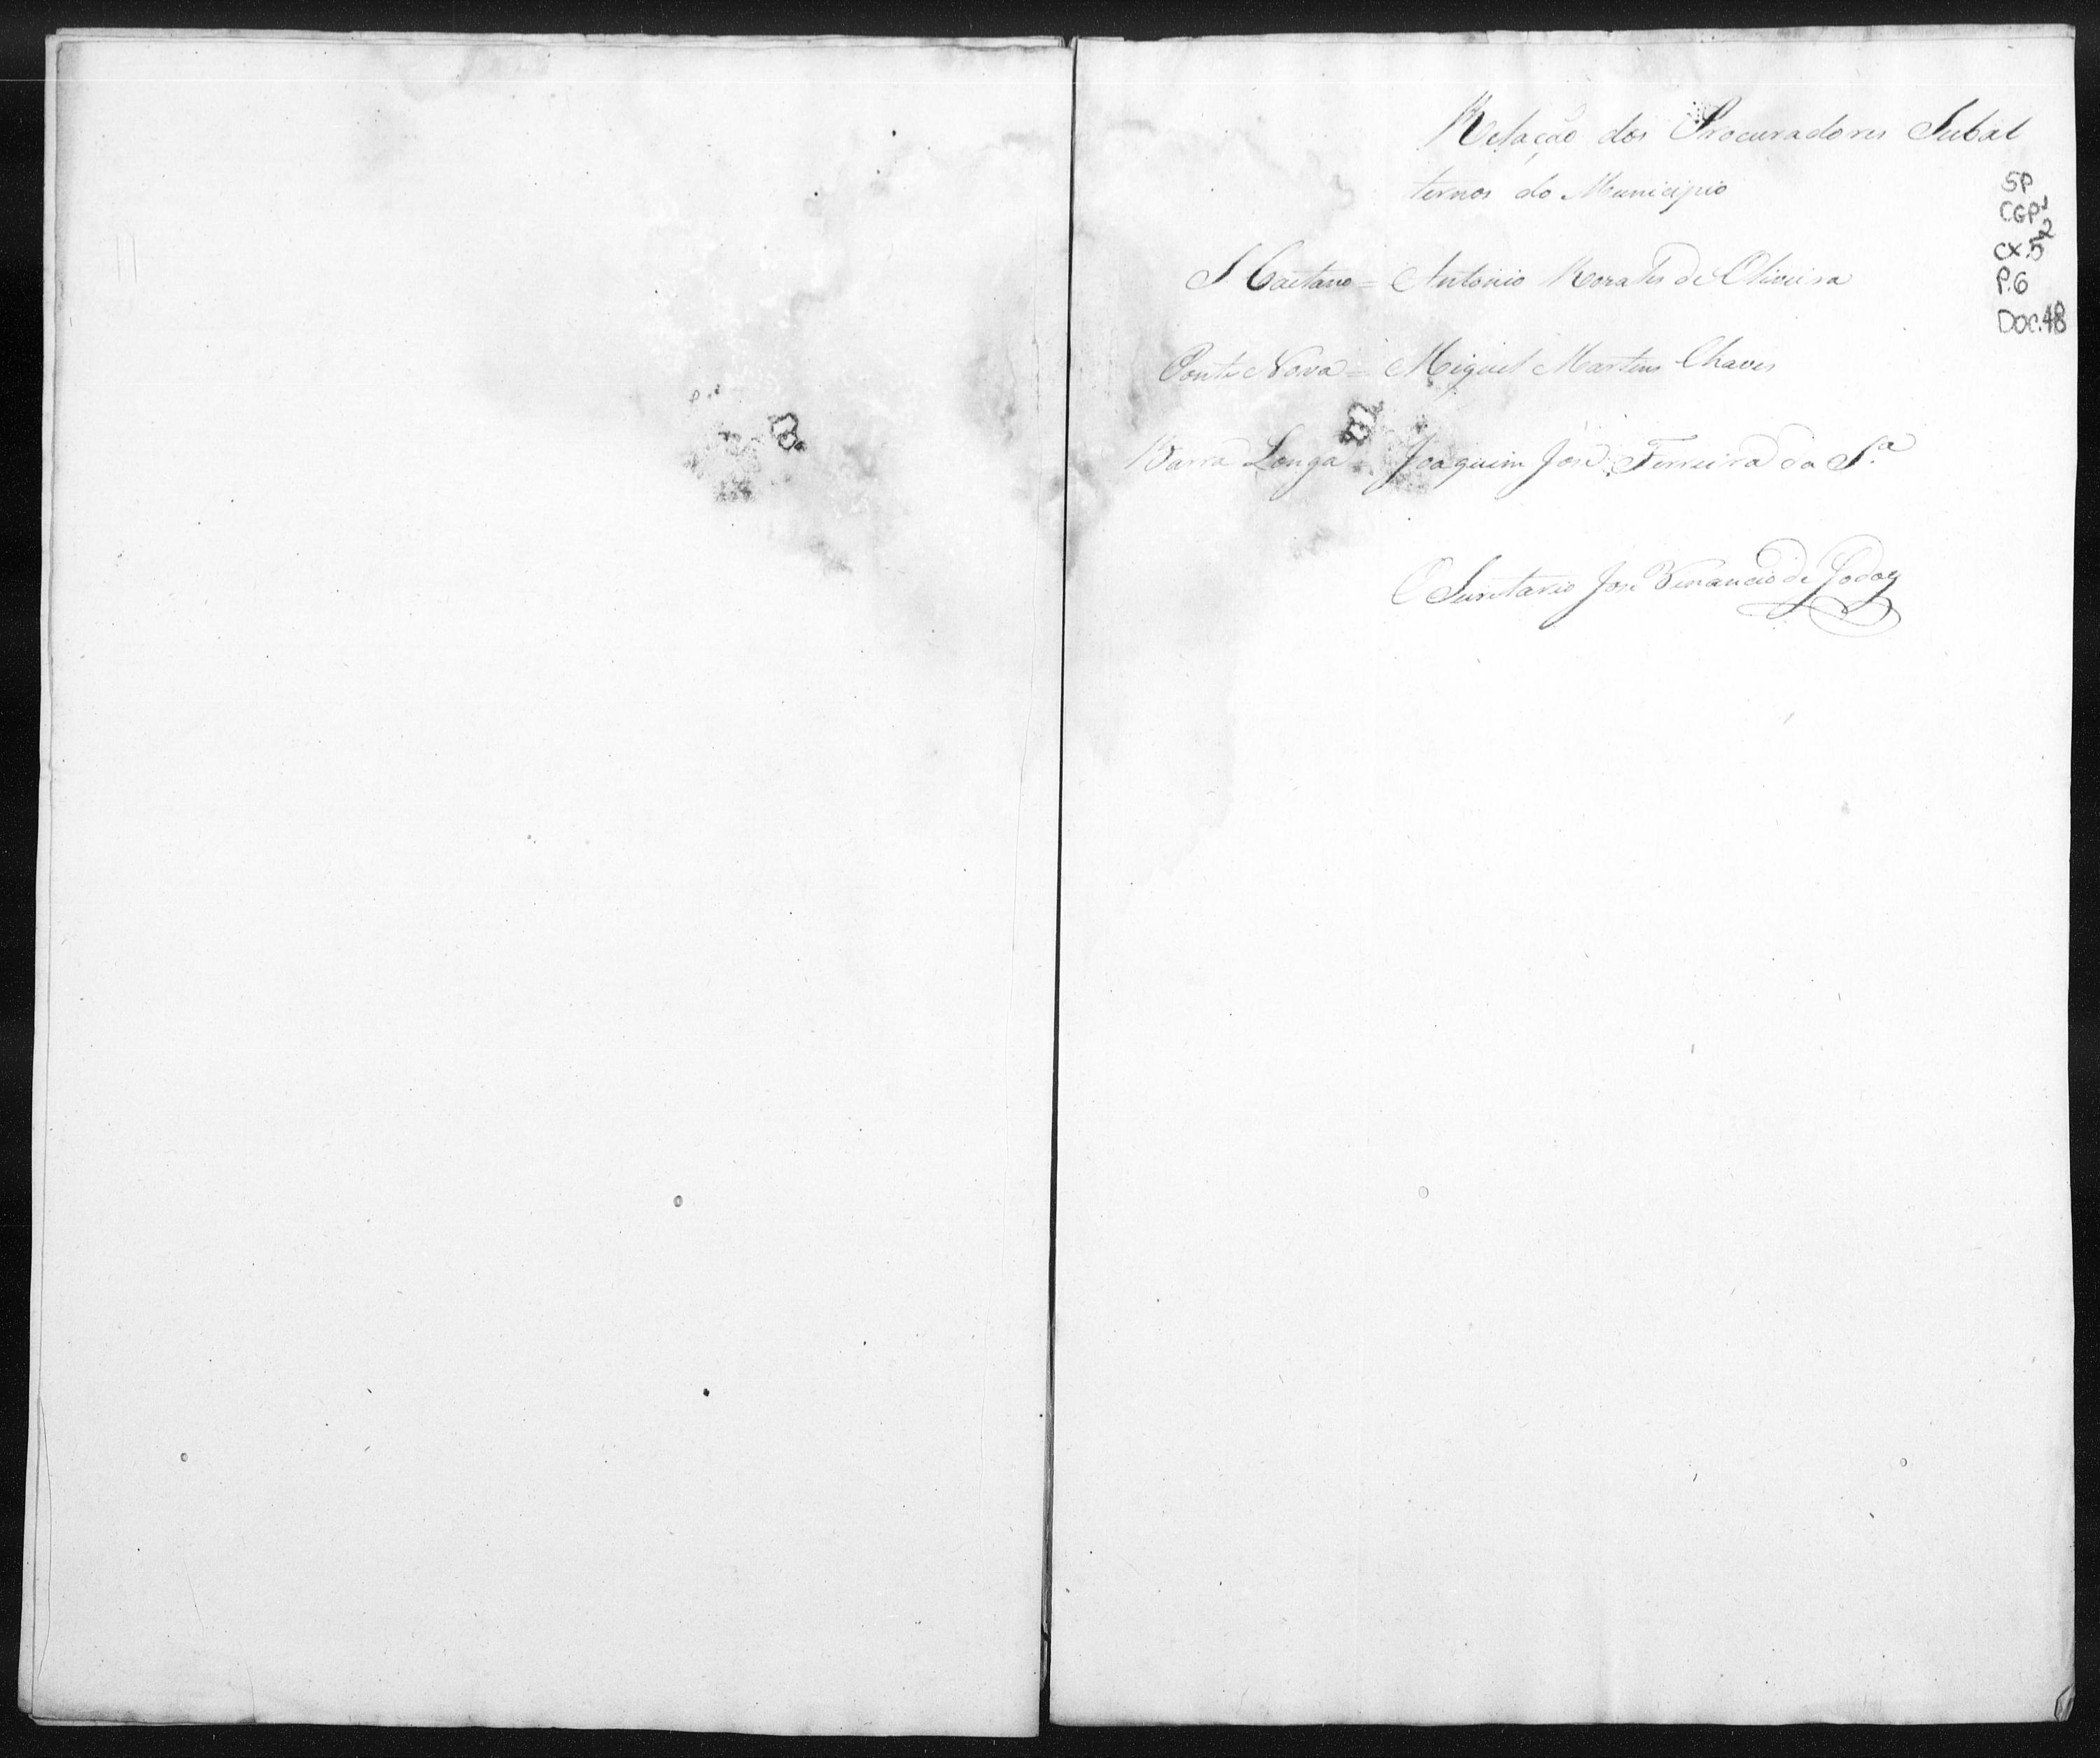 Relação dos Procuradores Subal
ternos do Municipio
SP
CGP¹
CX.5²
P.6
DOC.48
S Caetano = Antonio Moraes de Oliveira
Ponte Nova = Miguel Martins Chaves
Barra Longa = Joaquim José Ferreira da S.ª
O Secretario José Venancio de Godoy